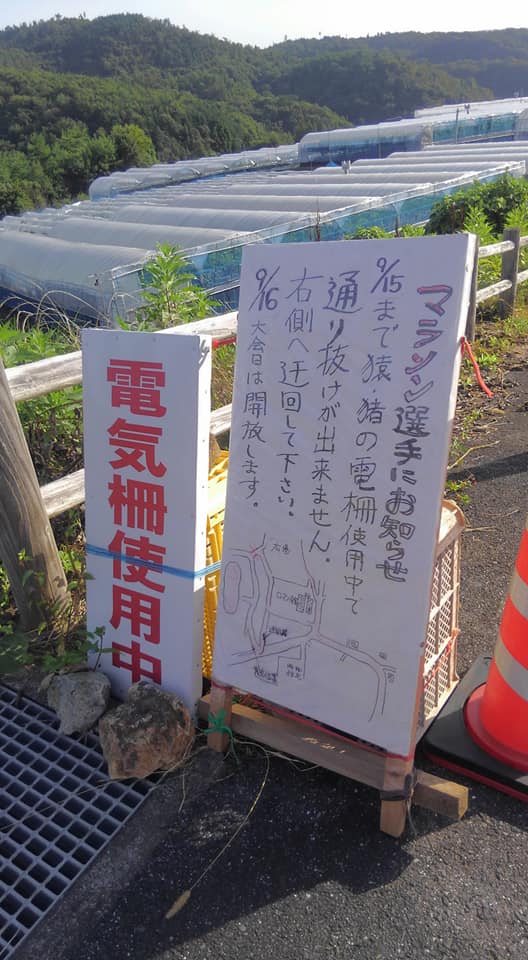 マラソン選手にお知らせ
9/15まで猿・猪の電柵使用中で
通り抜けが出来ません。
右側へ迂回して下さい。
9/16大会日は開放します。
電気柵使用中